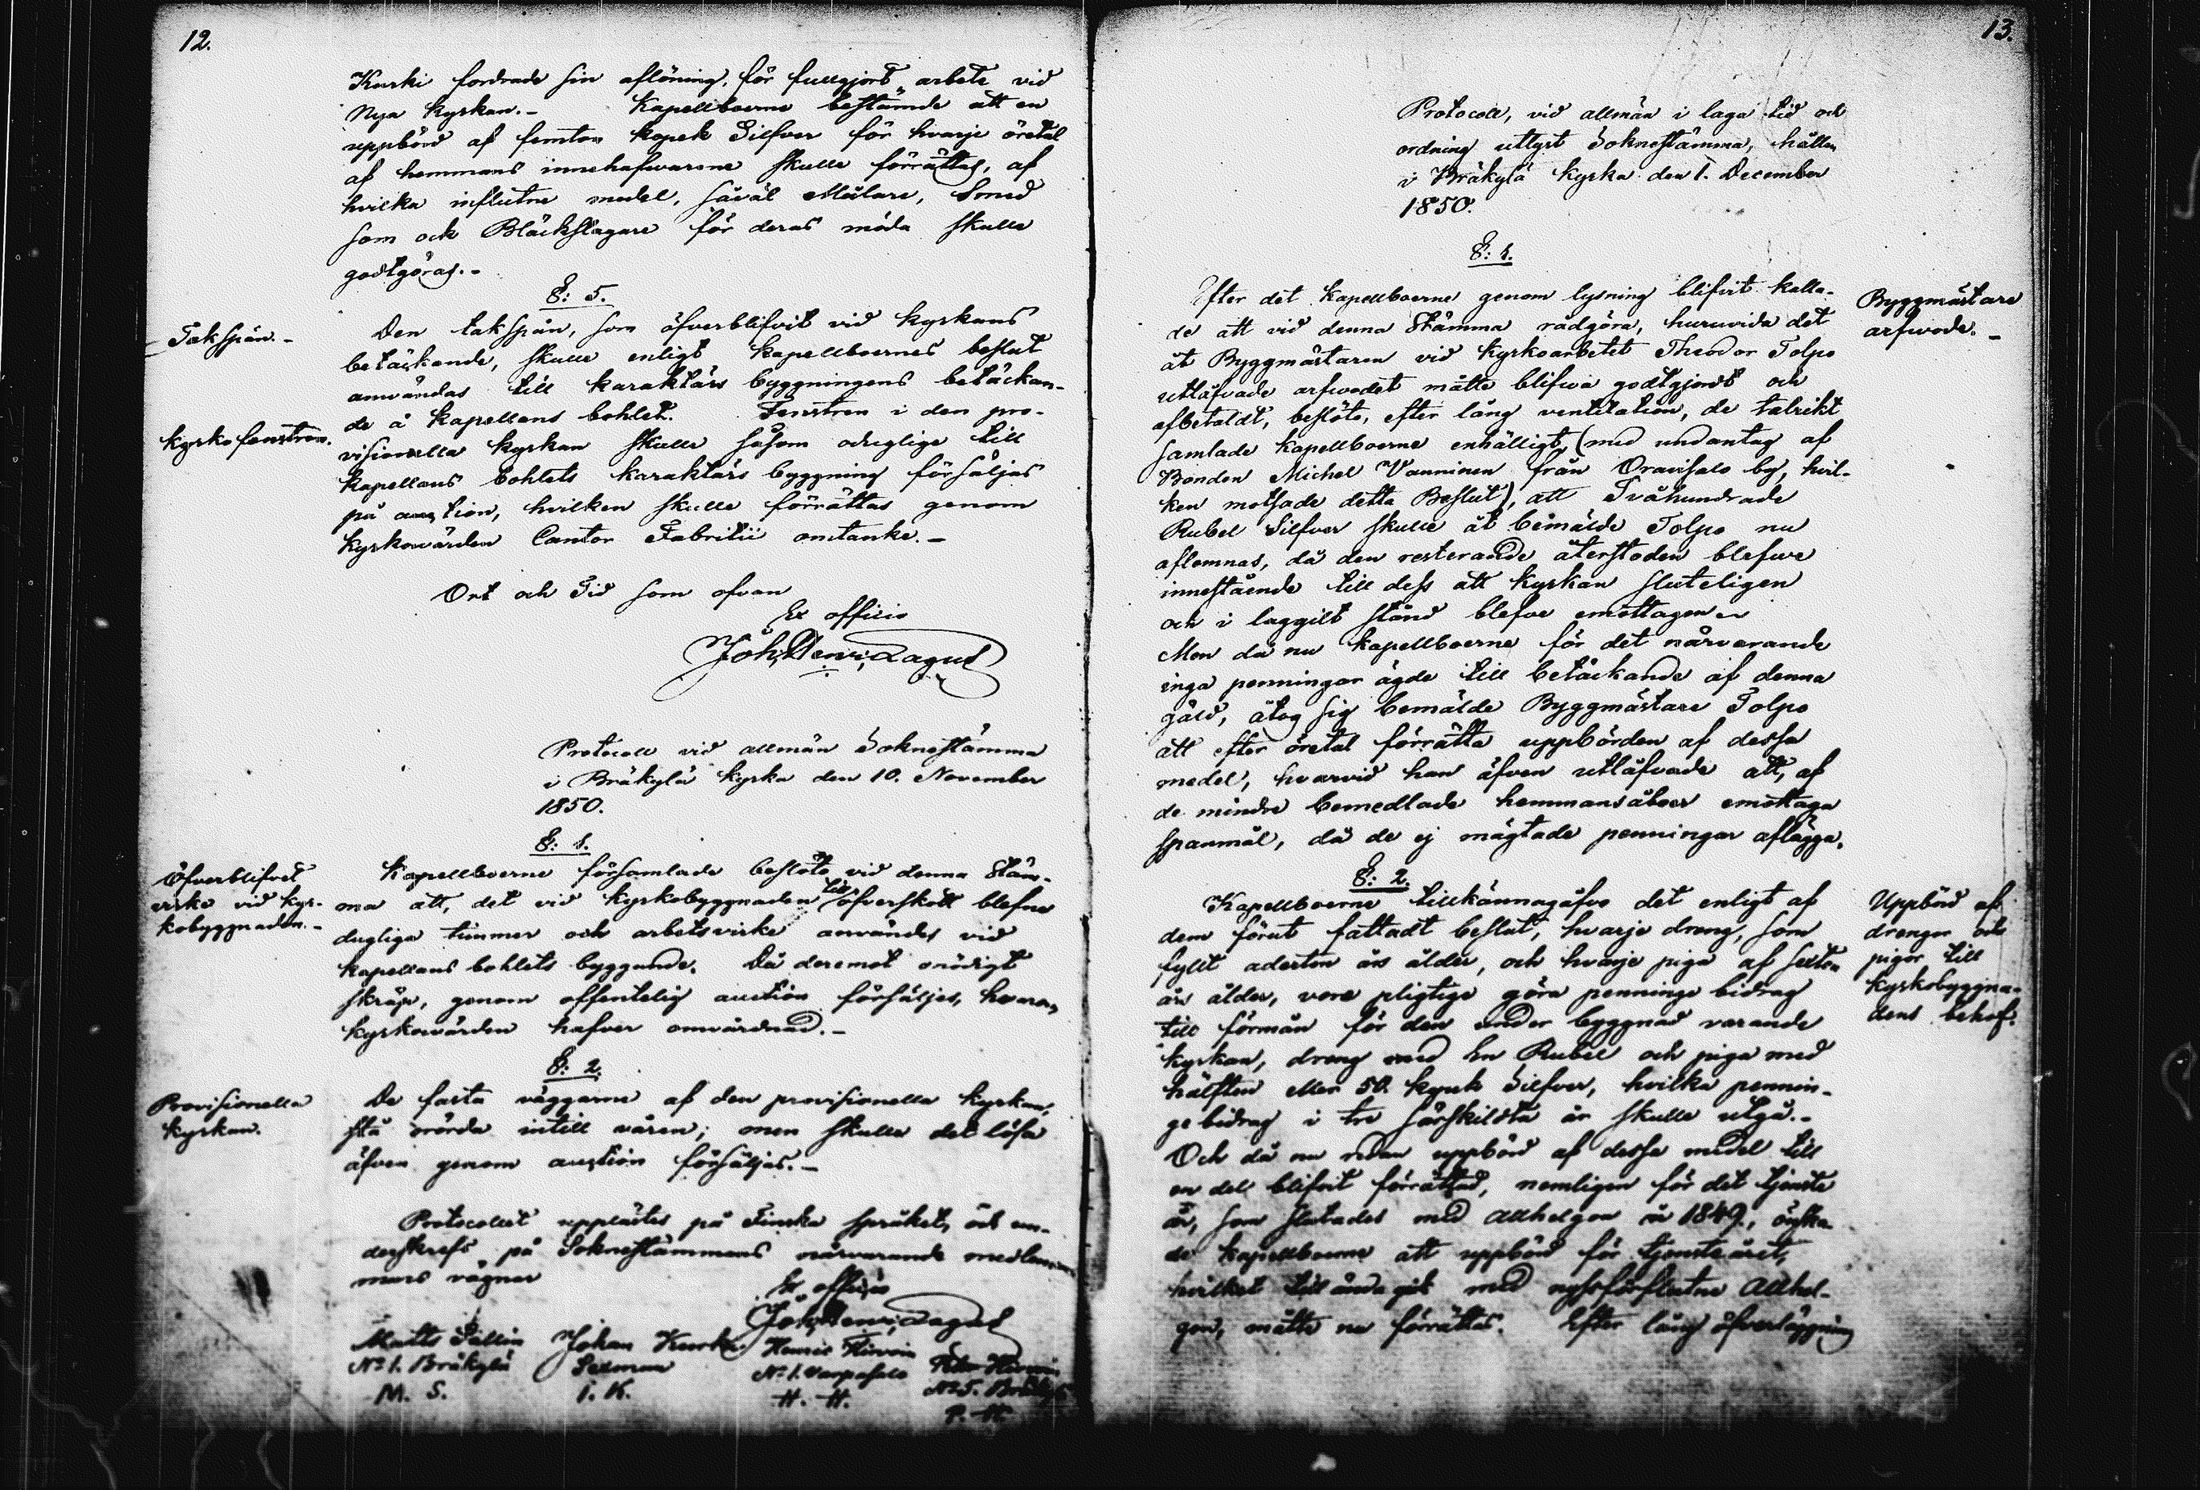 12.
Kurki fordrade sin aflöning, för fullgjort arbete vid
Nya Kyrkan. - Kapellboerne bestämde att en
uppbörd af femton kopek Silfver för hvarje öretal
af hemmans innehafwarene skulle förrättas, af
hvilka influtne medel, såväl Målare, Smed
som ock Bläckslagare för deras möda skulle
godtgöras. -
§: 5.
Takspån. -
Den takspån, som öfverblifvit vid Kyrkans
betäckande, skulle enligt Kapellboernes beslut
användas till karaktärs byggningens betäckan-
de å Kapellans bohlet. Fenstren i den pro-
Kyrko fenstren.
visionella Kyrkan skulle såsom oduglige till
Kapellans bohlets karaktärs byggning försäljas
på auction, hvilken skulle förrättas genom
Kyrkovärden Cantor Fabritii omtanke. -
Ort och Tid som ofvan
Ex officio
Joh. Henr. Lagus
Protocoll vid allmän Sokneftämma
i Bräkylä Kyrka den 10. November
1850.
§: 1.
Öfverblifvet
virke vid Kyr-
kobyggnaden. -
Kapellboerne församlade beslöto vid denna Stäm-
ma att, det vid Kyrkobyggnaden till öfverskott blefne
dugliga timmer och arbetsvirke användes vid
Kapellans bohlets byggande. Då deremot onödigt
skräp, genom offentelig auction försäljes, hvarom
Kyrkovärden hafver omvårdnad. -
§: 2.
Provisionella
Kyrkan.
De fasta väggarne af den provisionella Kyrkan,
stå orörda intill våren; men skulle det lösa
äfven genom auction försäljas. -
Protocollet upplästes på Finska språket, och un-
derskrefs på Soknestämmans närvarande medlem-
mars vägnar
Ex officio
Joh. Henr. Lagus
Matts Sallin Johan Kurki Henric Hirvin Peter Hirvoin
No 1. Bräkylä Sexman No 1. Varpasalo No 5. Bräkylä
M. S. I. K. H. H. P. H.
13.
Protocoll, vid allmän i laga tid och
ordning uttlyst Soknestämma, hållen
i Bräkylä Kyrka den 1. December
1850.
§: 1.
Byggmästare
arfwode. -
Efter det Kapellboerne genom lysning blifvit kalla-
de att vid denna Stämma rådgöra, huruvida det
åt Byggmästaren vid Kyrkoarbetet Theodor Tolpo
utläfvade arfwodet måtte blifwa godtgjordt och
afbetaldt, beslöto, efter lång ventilation, de talrikt
samlade Kapellboerne enhälligt, (med undantag af
Bonden Michel Vanninen från Oravisalo by, hvil-
ken motsade detta Beslut), att Tvåhundrade
Rubel Silfver skulle åt bemälde Tolpo nu
aflemnas, då den resterande återstoden blefwe
innestående till dess att Kyrkan sluteligen
och i laggilt stånd blefve emottagen. -
Men då nu Kapellboerne för det närvarande
inga penningar ägde till betäckande af denna
gäld, åtog sig bemälde Byggmästare Tolpo
att efter öretal förrätta uppbörden af dessa
medel, hvarvid han äfven utläfvade att, af
de mindre bemedlade hemmansåboer emottaga
spanmål, då de ej mägtade penningar aflägga.
§: 2.
Uppbörd af
drengar och
pigor till
Kyrkobyggna-
dens behof.
Kapellboerne tillkännagåfvo det enligt af
dem förut fattadt beslut, hvarje dreng, som
fyllt aderton års ålder, och hvarje piga af sexton
års ålder, vore pligtige göra penninge bidrag
till förmån för den under byggnad varande
Kyrkan, dreng med En Rubel och piga med
hälften eller 50. kopek Silfver, hvilka pennin-
ge bidrag i tre särskildta år skulle utgå. -
Och då nu redan uppbörd af dessa medel till
en del blifvit förrättad, nemligen för det tjenste
år, som slutades med Allhelgon år 1849., önska-
de Kapellboerne att uppbörd för tjensteåret,
hvilket till ända gick med nyssförflutne Allhel-
gon, måtte nu förrättas. Efter lång öfverläggning